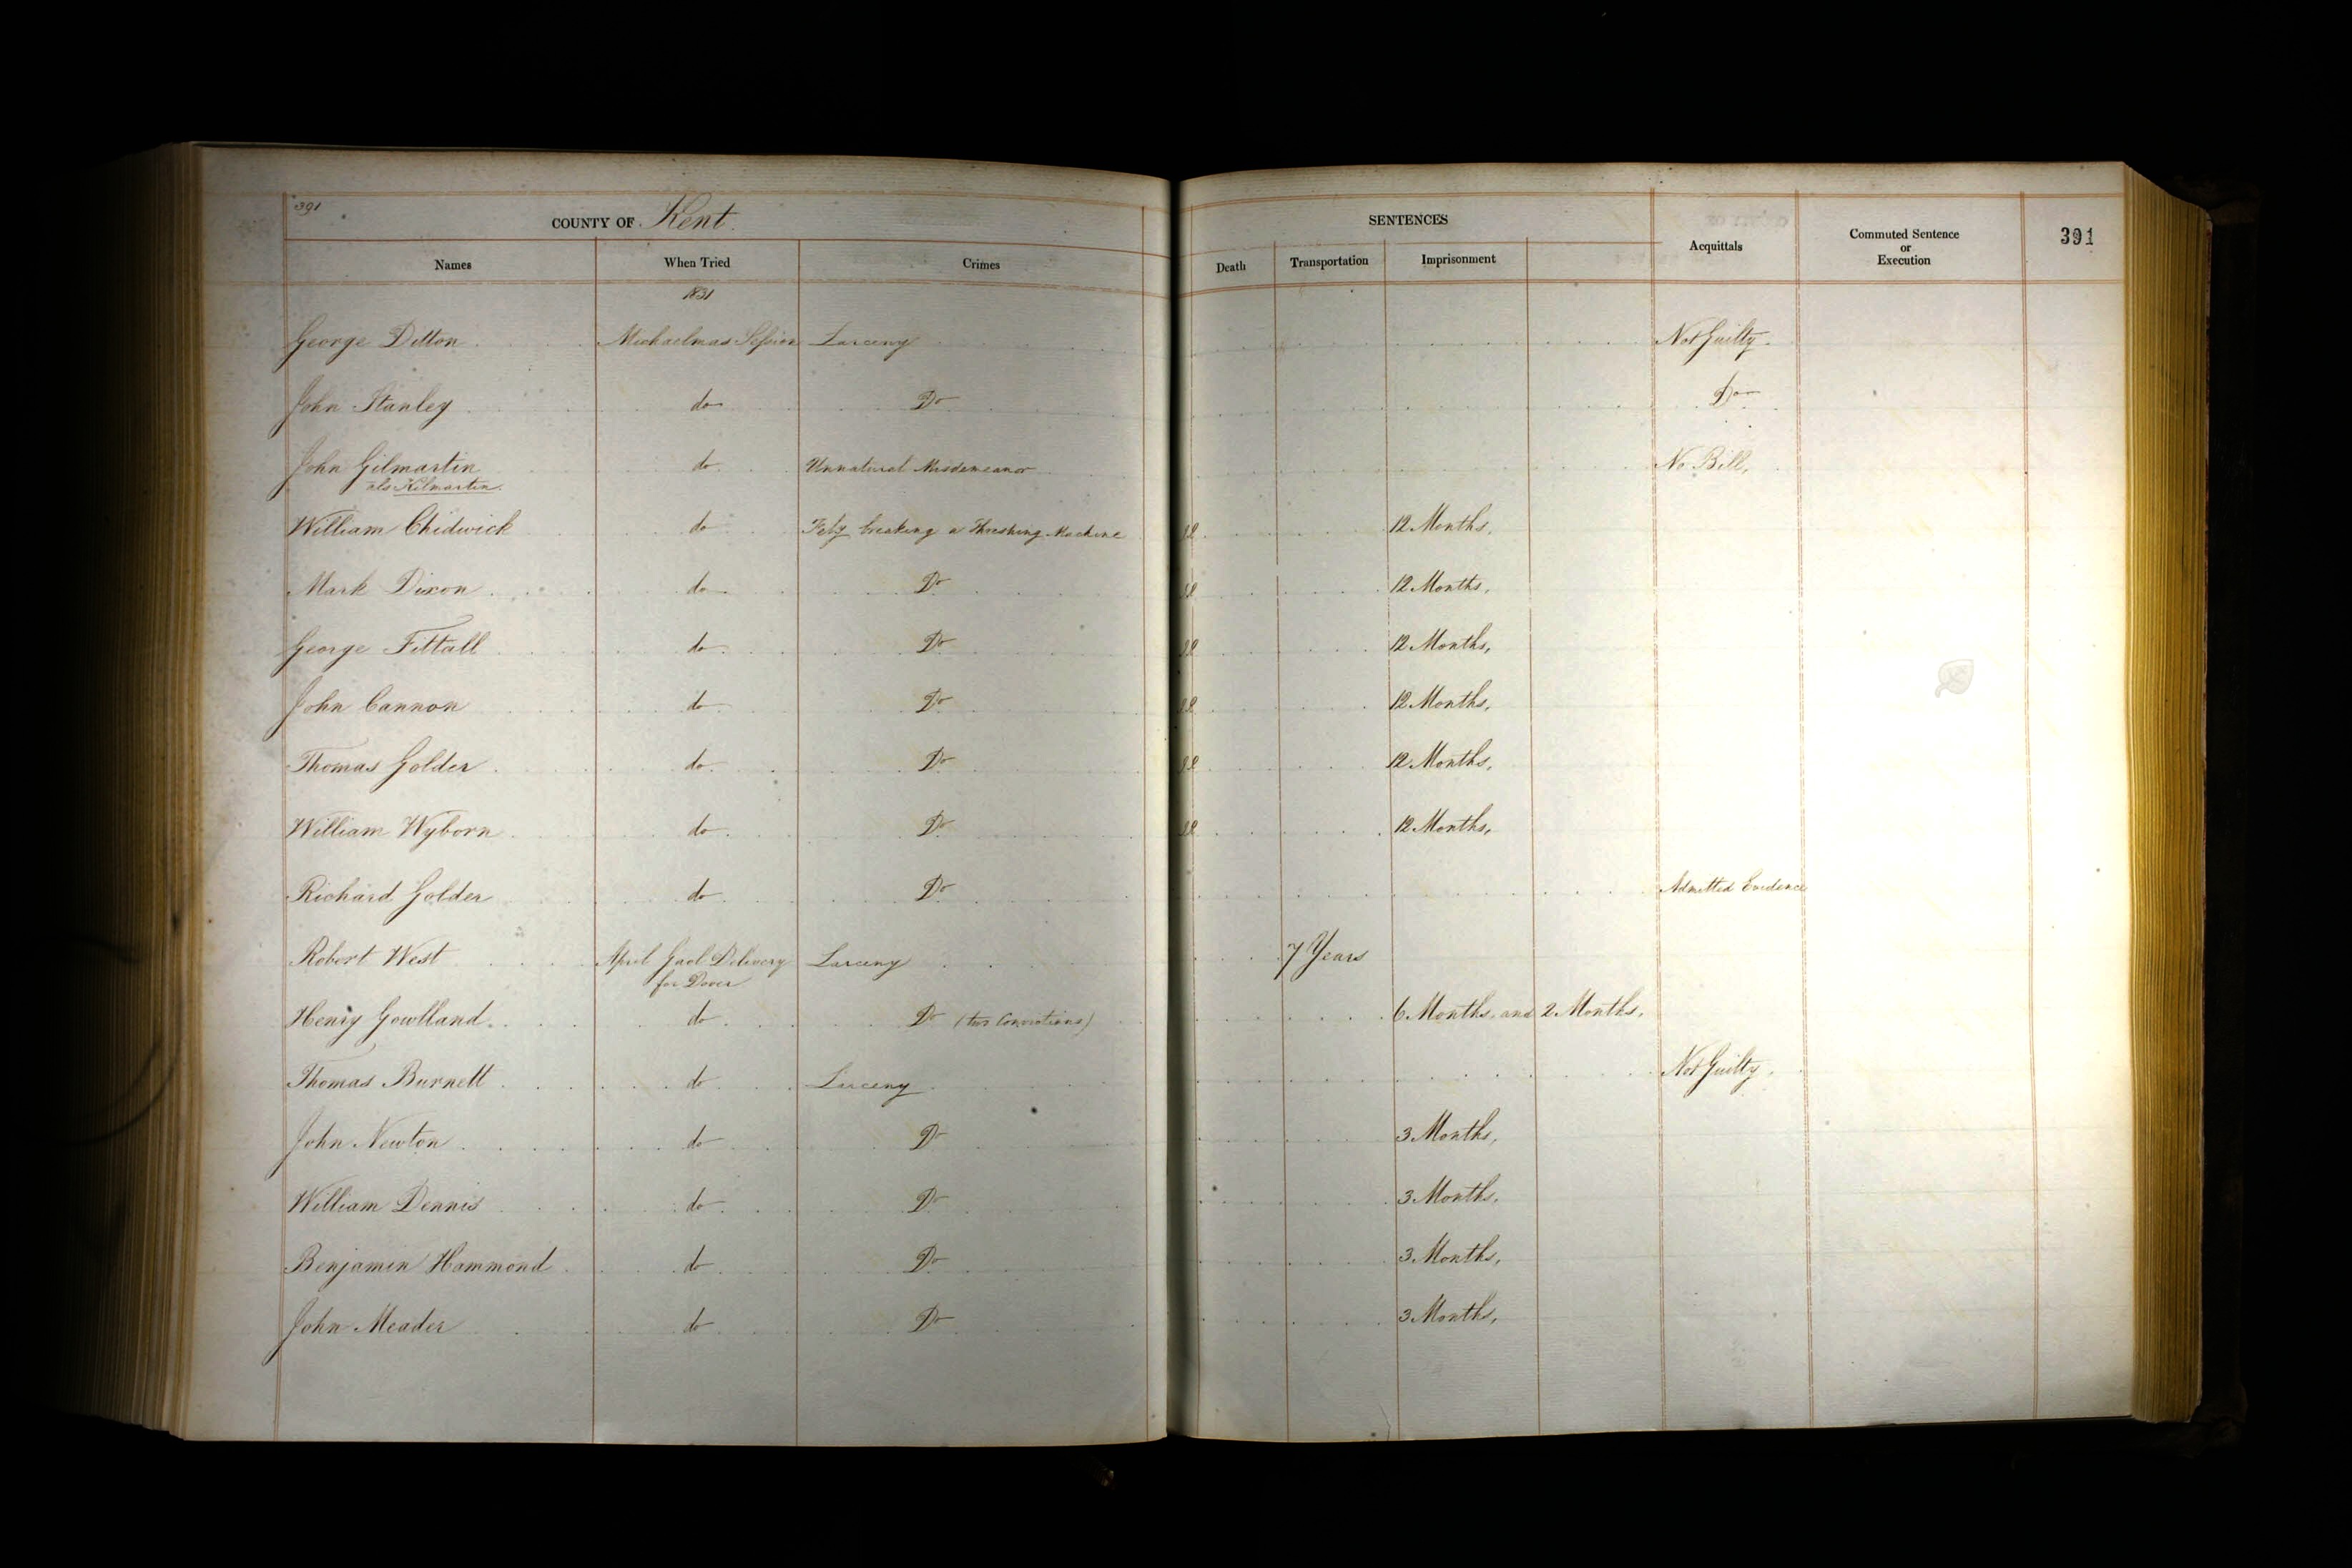 391
COUNTY OF Kent.
Names When Tried Crimes
SENTENCES
Death Transportation Imprisonment Acquittals Commuted Sentence or Execution 391
1831
George Ditton Michaelmas Session Larceny Not Guilty.
John Stanley do Do Do
John Gilmartin do Unnatural Misdemeanor No Bill,
als Kilmartin.
William Chidwick do Fely breaking a Threshing Machine 12 Months,
Mark Dixon do Do 12 Months,
George Fittall do Do 12 Months,
John Cannon do Do 12 Months,
Thomas Golder do Do 12 Months,
William Wyborn do Do 12 Months,
Richard Golder do Do Admitted Evidence
Robert West April Gaol Delivery Larceny 7 Years
for Dover
Henry Gowlland do Do (two Convictions) 6 Months, and 2 Months,
Thomas Burnett do Larceny Not Guilty,
John Newton do Do 3 Months,
William Dennis do Do 3 Months,
Benjamin Hammond do Do 3 Months,
John Meader do Do 3 Months,